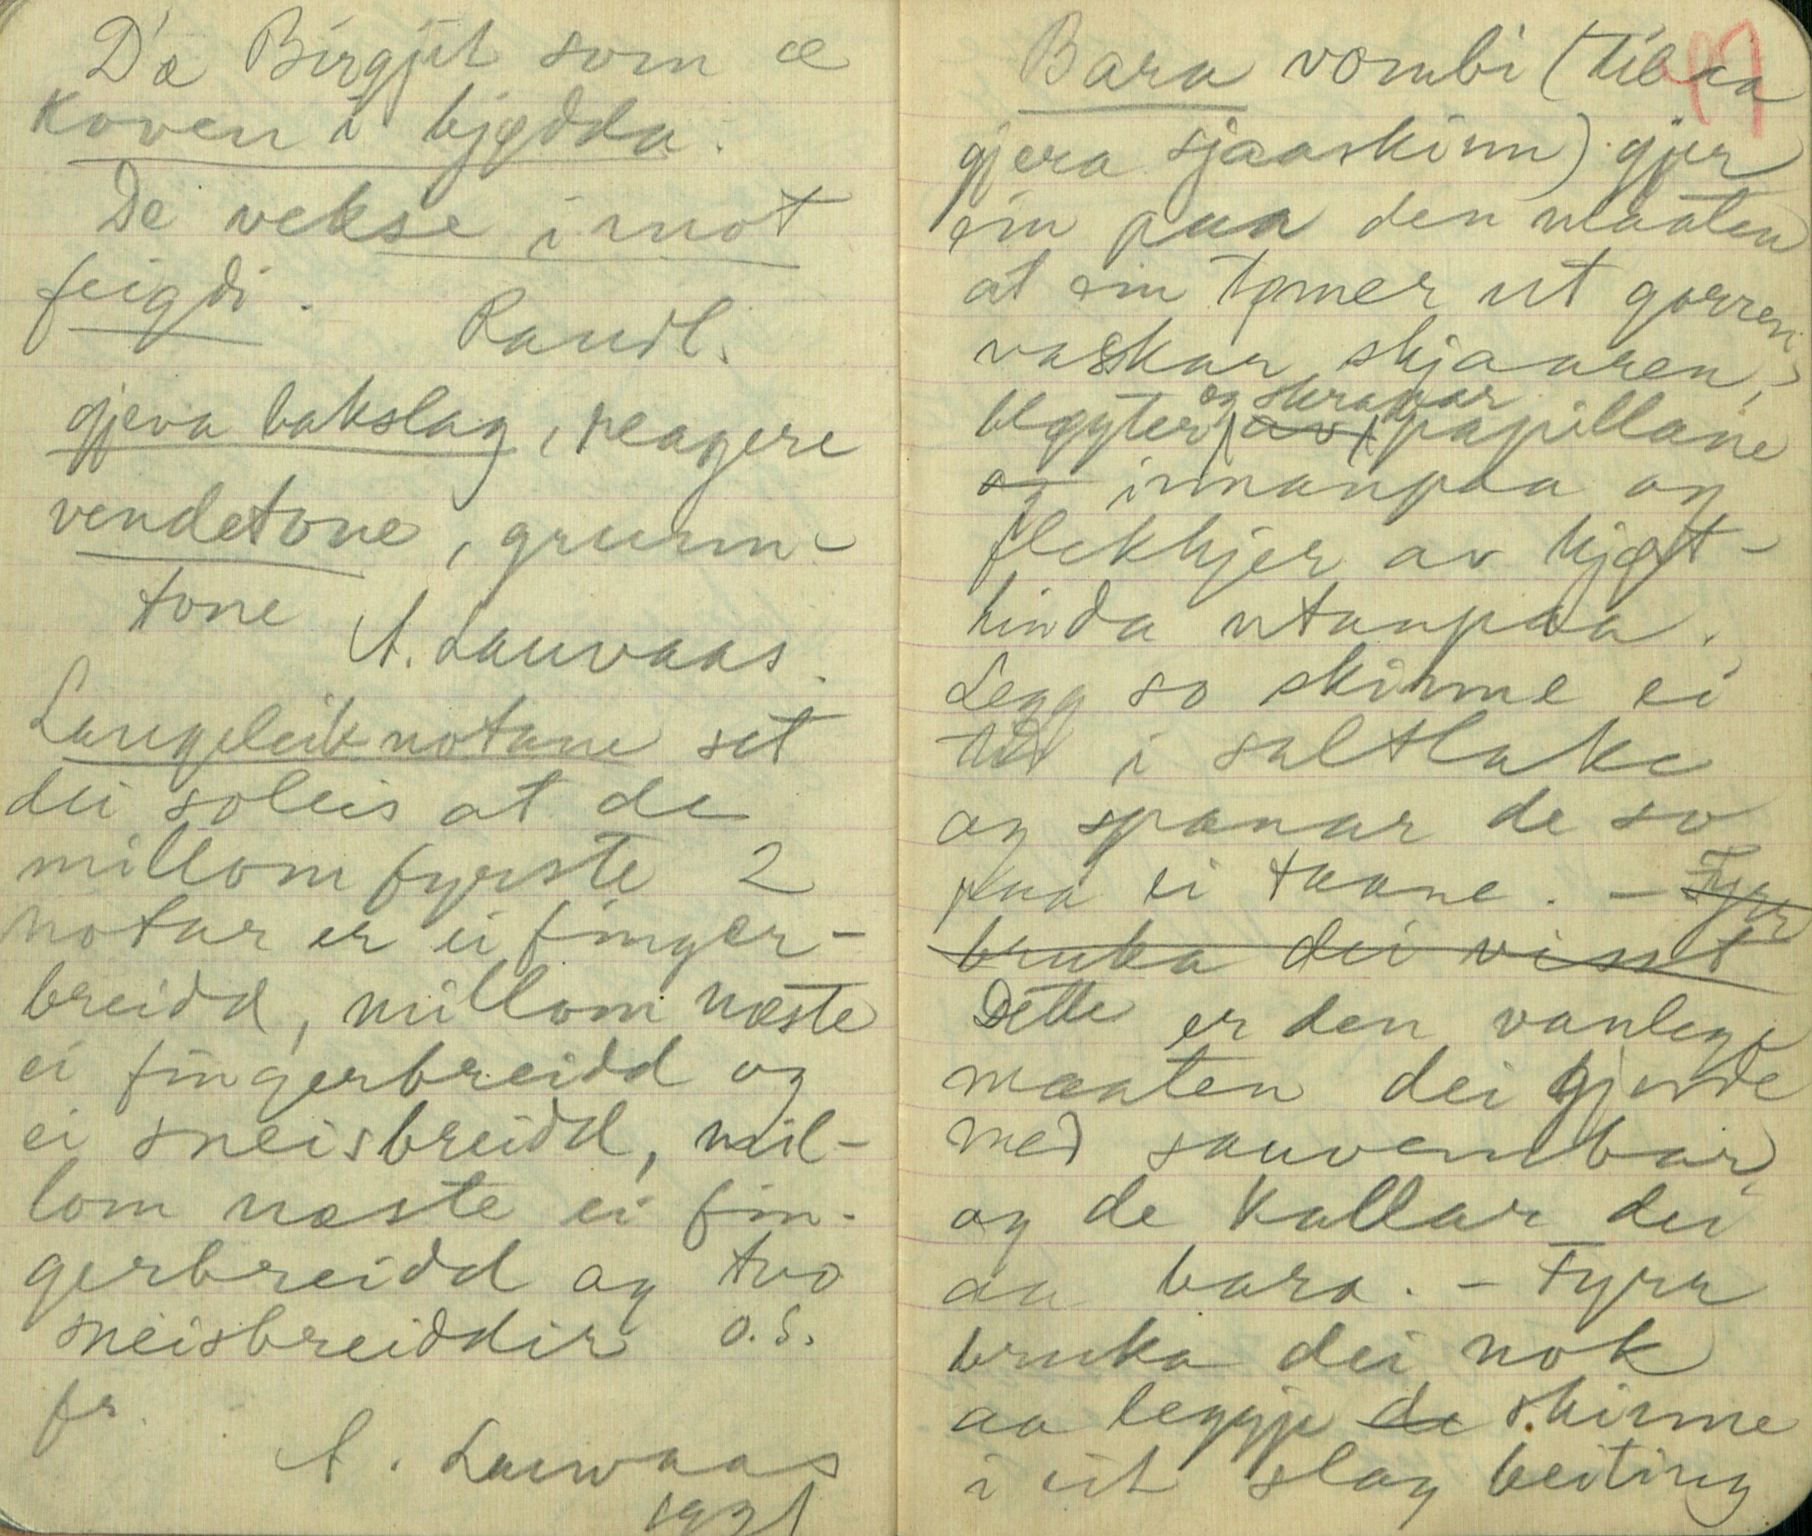 D'æ Birgjit som æ
koven i bjødda.
De vekse imot
feigdi.
Raudl.
gjeva bakslag, reagere
vendetone, grunn-
tone
A. Lauvaas.
Langeleiknotane set
dei soleis at de
millom fyrste 2
notar er ei finger-
breidd, millom næste
ei fingerbreidd og
ei sneisbreidd, mil-
lom næste ei fin-
gerbreidd og tvo
sneisbreiddir o.s.
fr.
A. Lauvaas
1921
Bara vombi (til aa
gjera sjaaskinn) gjer
ein paa den maaten
at ein tømer ut gorren,
vaskar skjaaren,
bløyter og skrapar av papillane
og innanpaa og
flekkjer av kjøt-
hinda utanpaa.
Legg so skinne ei
tid i saltlake
og spanar de so
paa ei taane. - Fyrr
bruka dei visst
Dette er den vanlege
maaten dei gjorde
med sauvembar,
og de kallar dei
aa bara. - Fyrr
bruka dei nok
aa leggje de skinne
i eit slag beiting